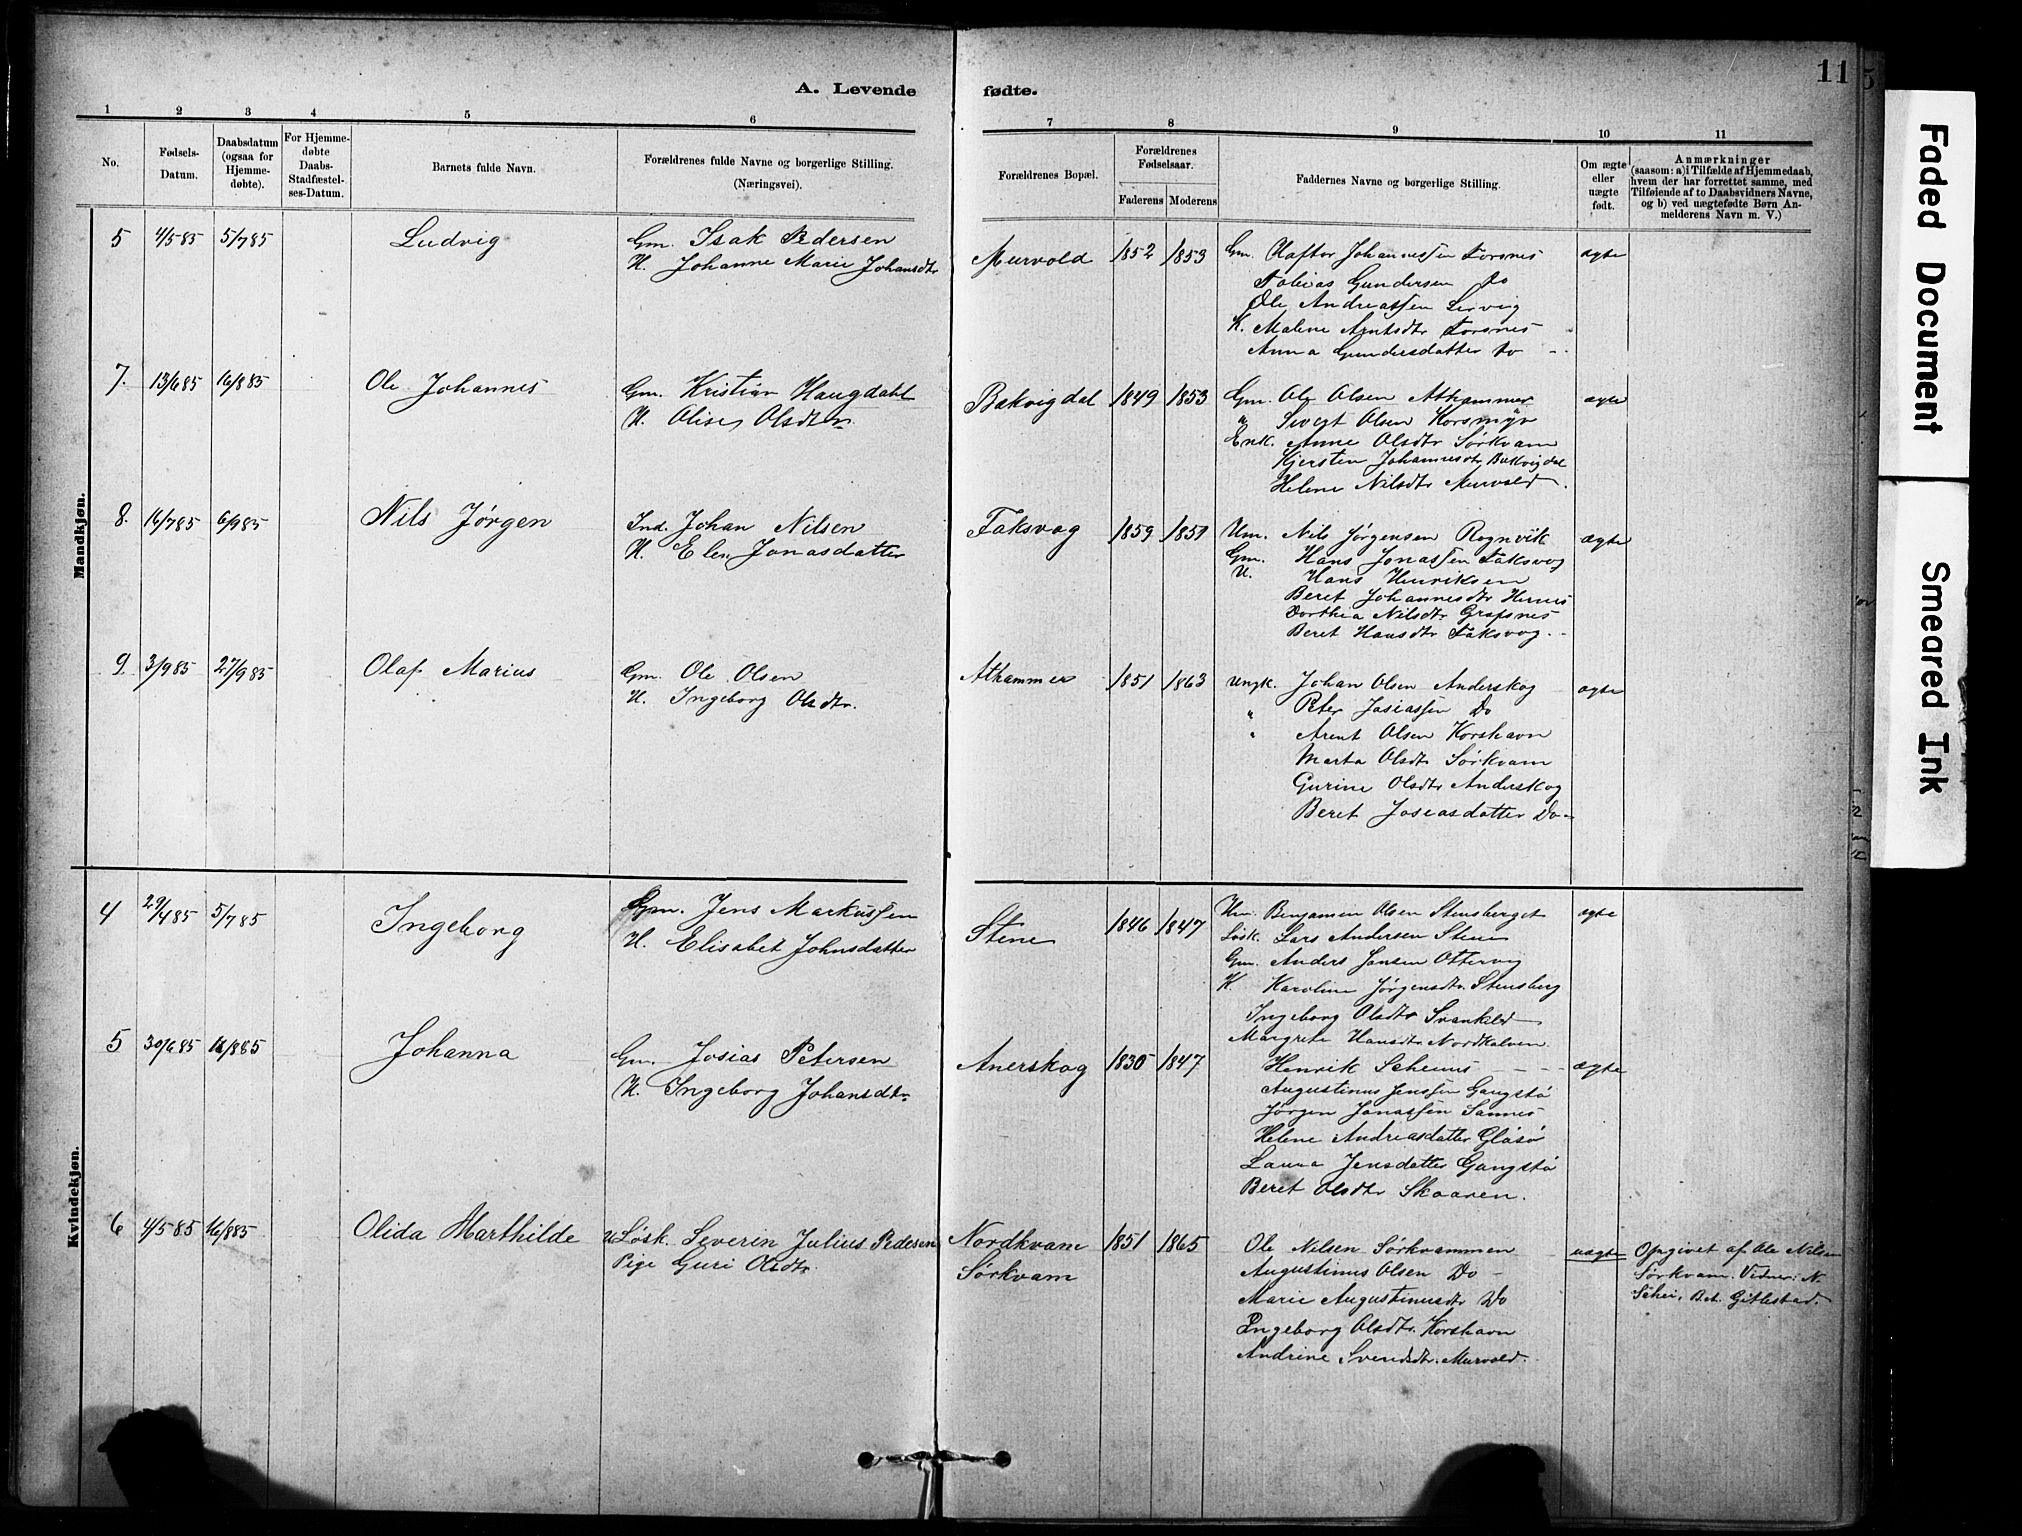 11
A. Levende fødte.
1 2 3 4 5 6 7 8 9 10 11
No.
Fødsels-
Datum.
Daabsdatum
(ogsaa for
Hjemme-
døbte).
For Hjemme-
døbte
Daabs-
Stadfæstel-
ses-Datum.
Barnets fulde Navn.
Forældrenes fulde Navne og borgerlige Stilling.
(Næringsvei).
Forældrenes Bopæl.
Forældrenes
Fødselsaar.
Faderens Moderens
Faddernes Navne og borgerlige Stilling.
Om ægte
eller
uægte
født.
Anmærkninger
(saasom: a) i Tilfælde af Hjemmedaab,
hvem der har forrettet samme, med
Tilføiende af to Daabsvidners Navne,
og b) ved uægtefødte Børn An-
melderens Navn m. V.)
Mandkjøn.
5 4/5 85 5/7 85 Ludvig Gm. Isak Pedersen
H. Johanne Marie Johansdtr
Murvold 1852 1853 Gm. Olaftor Johannessen Forsnes ægte
Tobias Gundersen do
Ole Andreassen Lervig
K. Malene Arntsdtr Forsnes
Anna Gundersdatter do
7. 13/6 85 16/8 85 Ole Johannes Gm. Kristian Haugdahl
H. Olise Olsdtr
Bakvigdal 1849 1853 Gm. Ole Olsen Athammer ægte
" Sivert Olsen Korsmyr
Enk. Anne Olsdtr Sørkvam
Kjersten Johannesdtr Bakvigdal
Helene Nilsdtr Murvold.
8. 16/7 85 6/9 85 Nils Jørgen Ind. Johan Nilsen
H. Elen Jonasdatter
Faksvag 1859 1851 Um. Nils Jørgensen Rognvik ægte
Gm. Hans Jonassen Faksvog
U. Hans Henriksen
Beret Johannesdtr Hernes
Dorthia Nilsdtr Grefsnes
Beret Hansdtr Faksvog.
9 3/9 85 27/9 85 Olaf Marius Gm. Ole Olsen
H. Ingeborg Olsdtr.
Athammer 1851 1863 Ungk. Johan Olsen Anderskog ægte
" Peter Josiassen Do
" Arent Olsen Korshavn
Marta Olsdtr Sørkvam
Gurine Olsdtr Anderskog
Beret Josiasdatter Do
Kvindekjøn.
4 29/4 85 5/7 85 Ingeborg Gm. Jens Markussen
H. Elisabet Johnsdatter
Stene 1846 1847 Um. Benjamen Olsen Stensberget ægte
Løsk. Lars Andersen Stene
Gm. Anders Jansen Ottervig
K. Karoline Jørgensdtr. Stensberg
Ingeborg Olsdtr Svankld
Margrete Hansdtr Nordkalven.
5 30/6 85 16/8 85 Johanna Gm. Josias Petersen
H. Ingeborg Johansdtr
Anerskog 1830 1847 Henrik Scheims ægte
Augustinus Jenssen Gangstø
Jørgen Jonassen Sannes
Helene Andreasdatter Gläsø
Laura Jensdatter Gangstø
Beret Olsdtr Skaaren.
6 4/5 85 16/8 85 Olida Marthilde U Løsk. Severin Julius Pedesen
Pige Guri Olsdtr
Nordkvam 1851 1865 Ole Nilsen Sørkvammen uægte Opgivet af Ole Nilsen
Sørkvam Augustinus Olsen Do Sørkvam. Vidner: N.
Marie Augustinusdtr Do Schei, Bet. Gitlestad.
Ingeborg Olsdtr. Korshavn
Andrine Svendsdtr. Murvold.
Faded Document
Smeared Ink